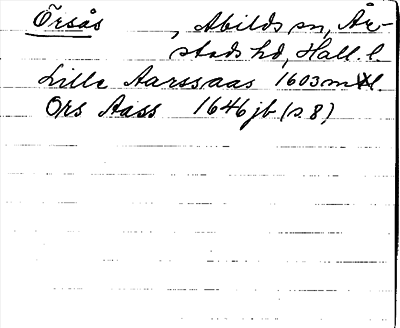 Örsås , Abilds sn, År-
stads hd, Hall. l.
Lille Aarssaas 1603 ml.
Ors Aass 1646 jb (s. 8)